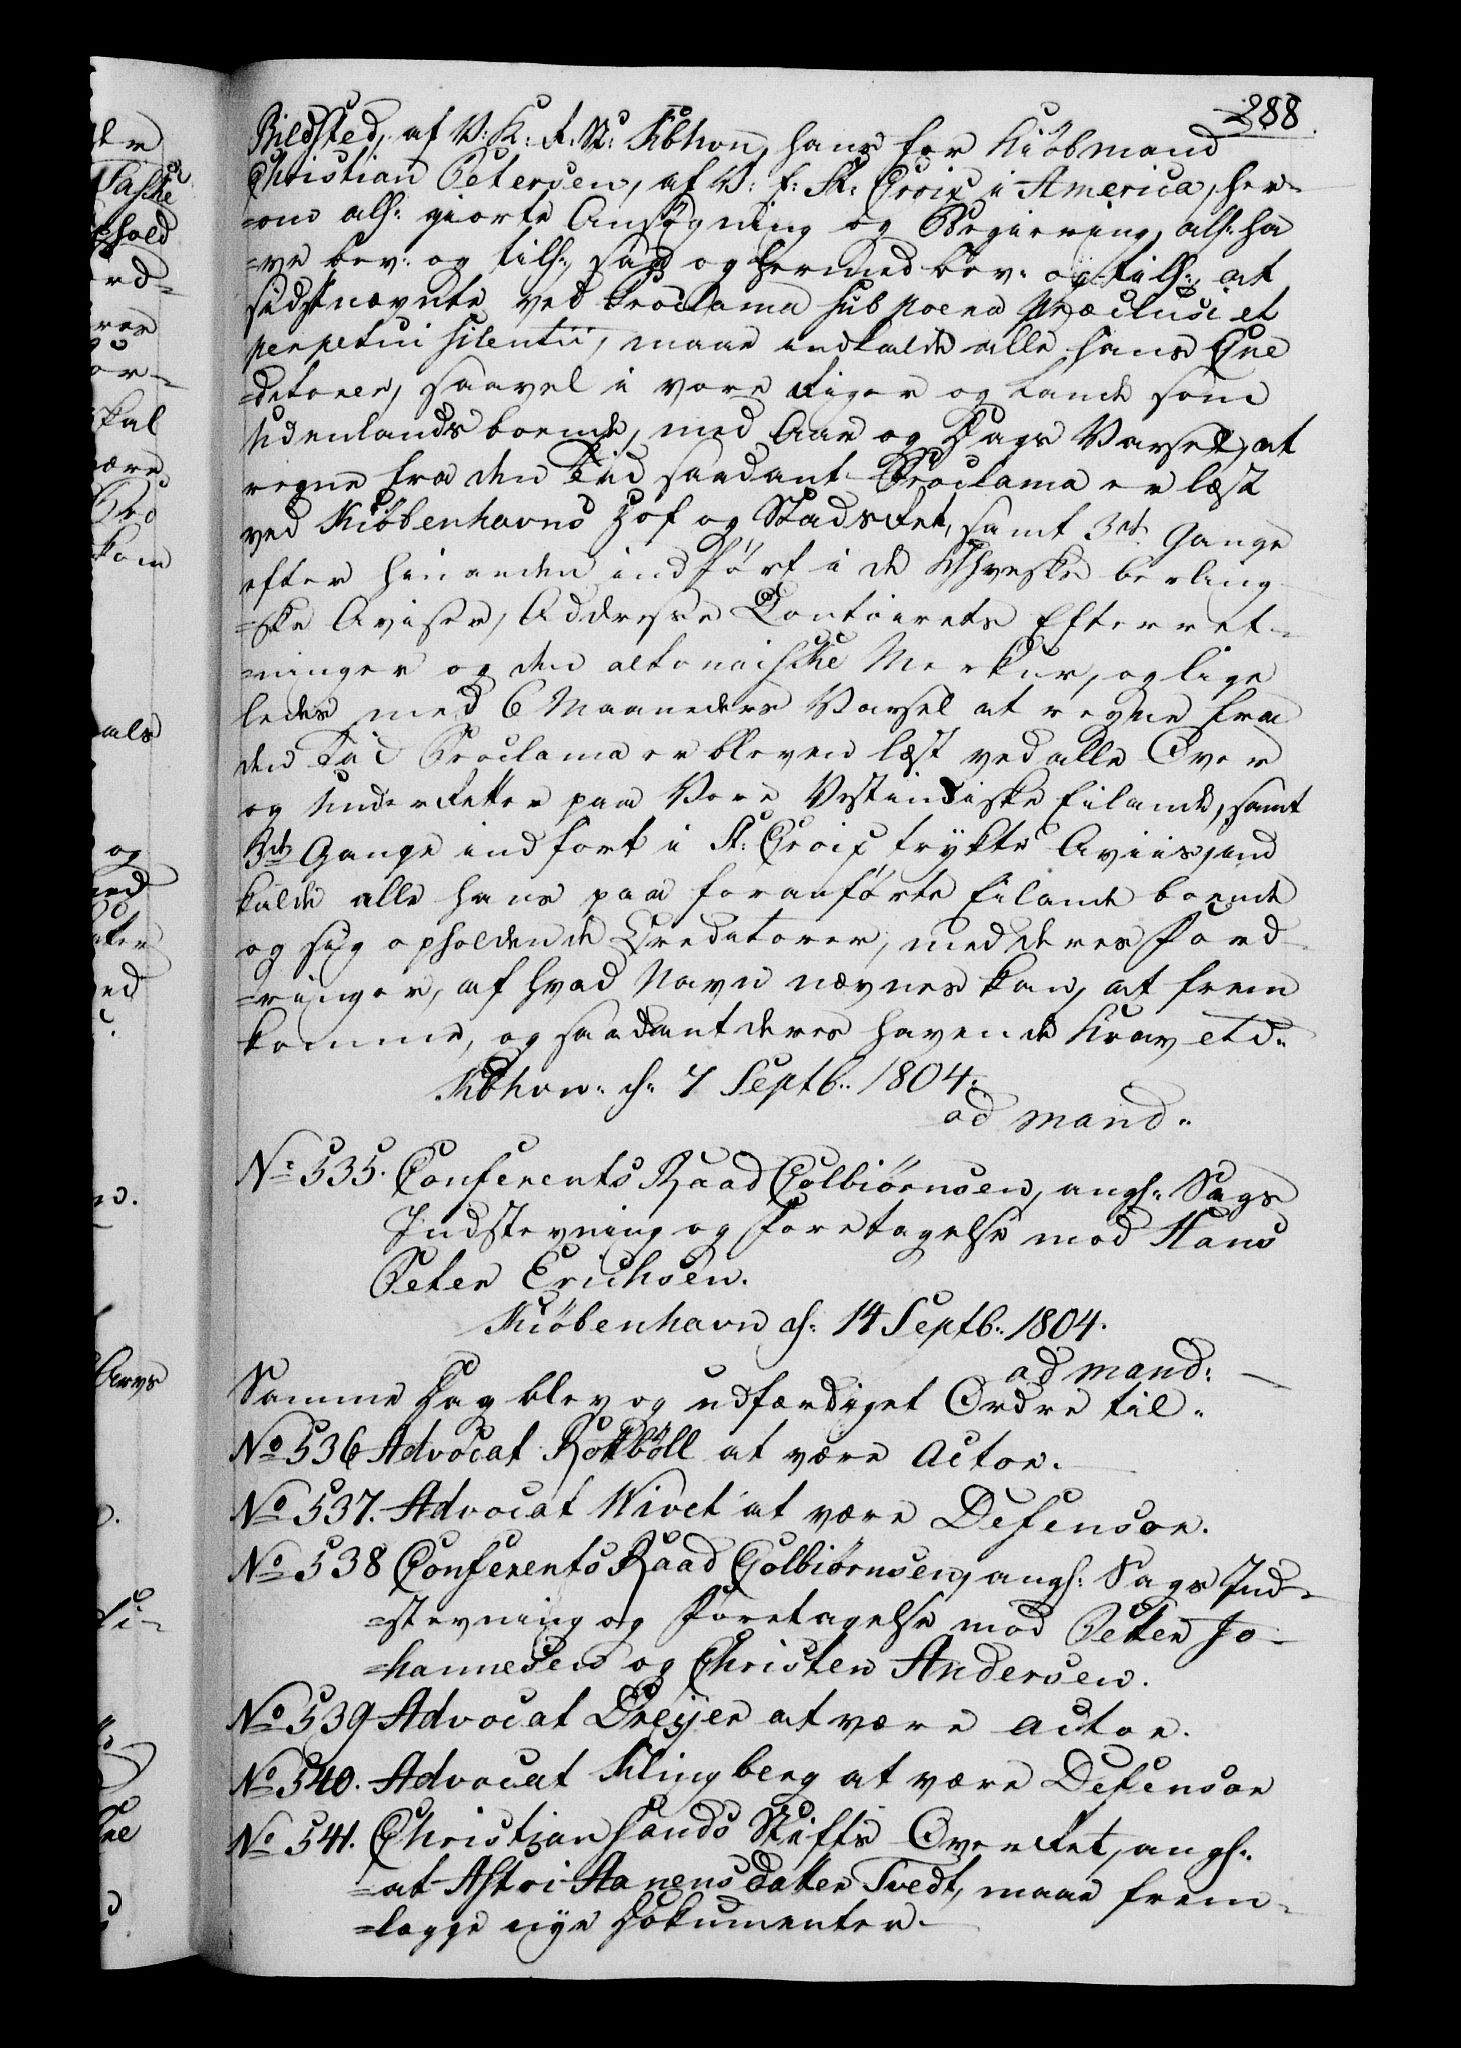 288.
Bildsted, af V: K: R: St: Kbhvn, hans for Kiöbmand
Christian Petersen, af V: E: St: Croix i America, her-
=om all: giorte Ansøgning og Begiering, all: ha
=ve bev: og till:, saa og hermed bev: og till:, at
sidstnævnte ved Proclama sub poena præclusi et
perpetui silentii, maae indkalde alle hans Cre
=ditorer, saavel i vore Riger og Lande som
Udenlands boende, med Aar og Dags Varsel, at
regne fra den Tid saadant Proclama er læst
ved Kiöbenhavns Hof og Stads Ret, samt 3de Gange
efter hinanden indført i de berling
=ske Aviser, Addresse Contoirets Efterret-
=ninger og den altonaische Merkur, og lige
ledes med 6 Maaneders Varsel at regne fra
den Tid Proclama er bleven læst ved alle Over
og Underretter paa Vore Vestindiske Eilande, samt
3de Gange indfort i St: Croix trykte Aviis, ind
kalde alle hans paa foranførte Eilande boende
og sig opholdende Creditorer, med deres Ford
=ringer, af hvad Navn nævnes kan, at frem
komme, og saadant deres havende Krav etc:
Kbhvn: d: 7 Septb: 1804.
ad mand:
No 535. Conferents Raad Colbiörnsen, angl: Sags
Indstevning og Foretagelse mod Hans
Peter Erichsen.
Kiöbenhavn d: 14 Septb: 1804.
ad mand:
Samme Dag blev og udfærdiget Ordre til:
No 536 Advocat Rottböll at være Actor.
No 537. Advocat Wivet at være Defensor.
No 538 Conferents Raad Colbiörnsen, angl: Sags Ind-
=stevning og Foretagelse mod Petter Jo-
=hannesen og Christen Andersen.
No 539 Advocat Dreÿer at være Actor.
No 540. Advocat Klingberg at være Defensor
No 541. Christiansands Stifts Overret, angl:
=at Astri Aanensdatter Tvedt, maae frem-
=lægge nye Dokumenter.